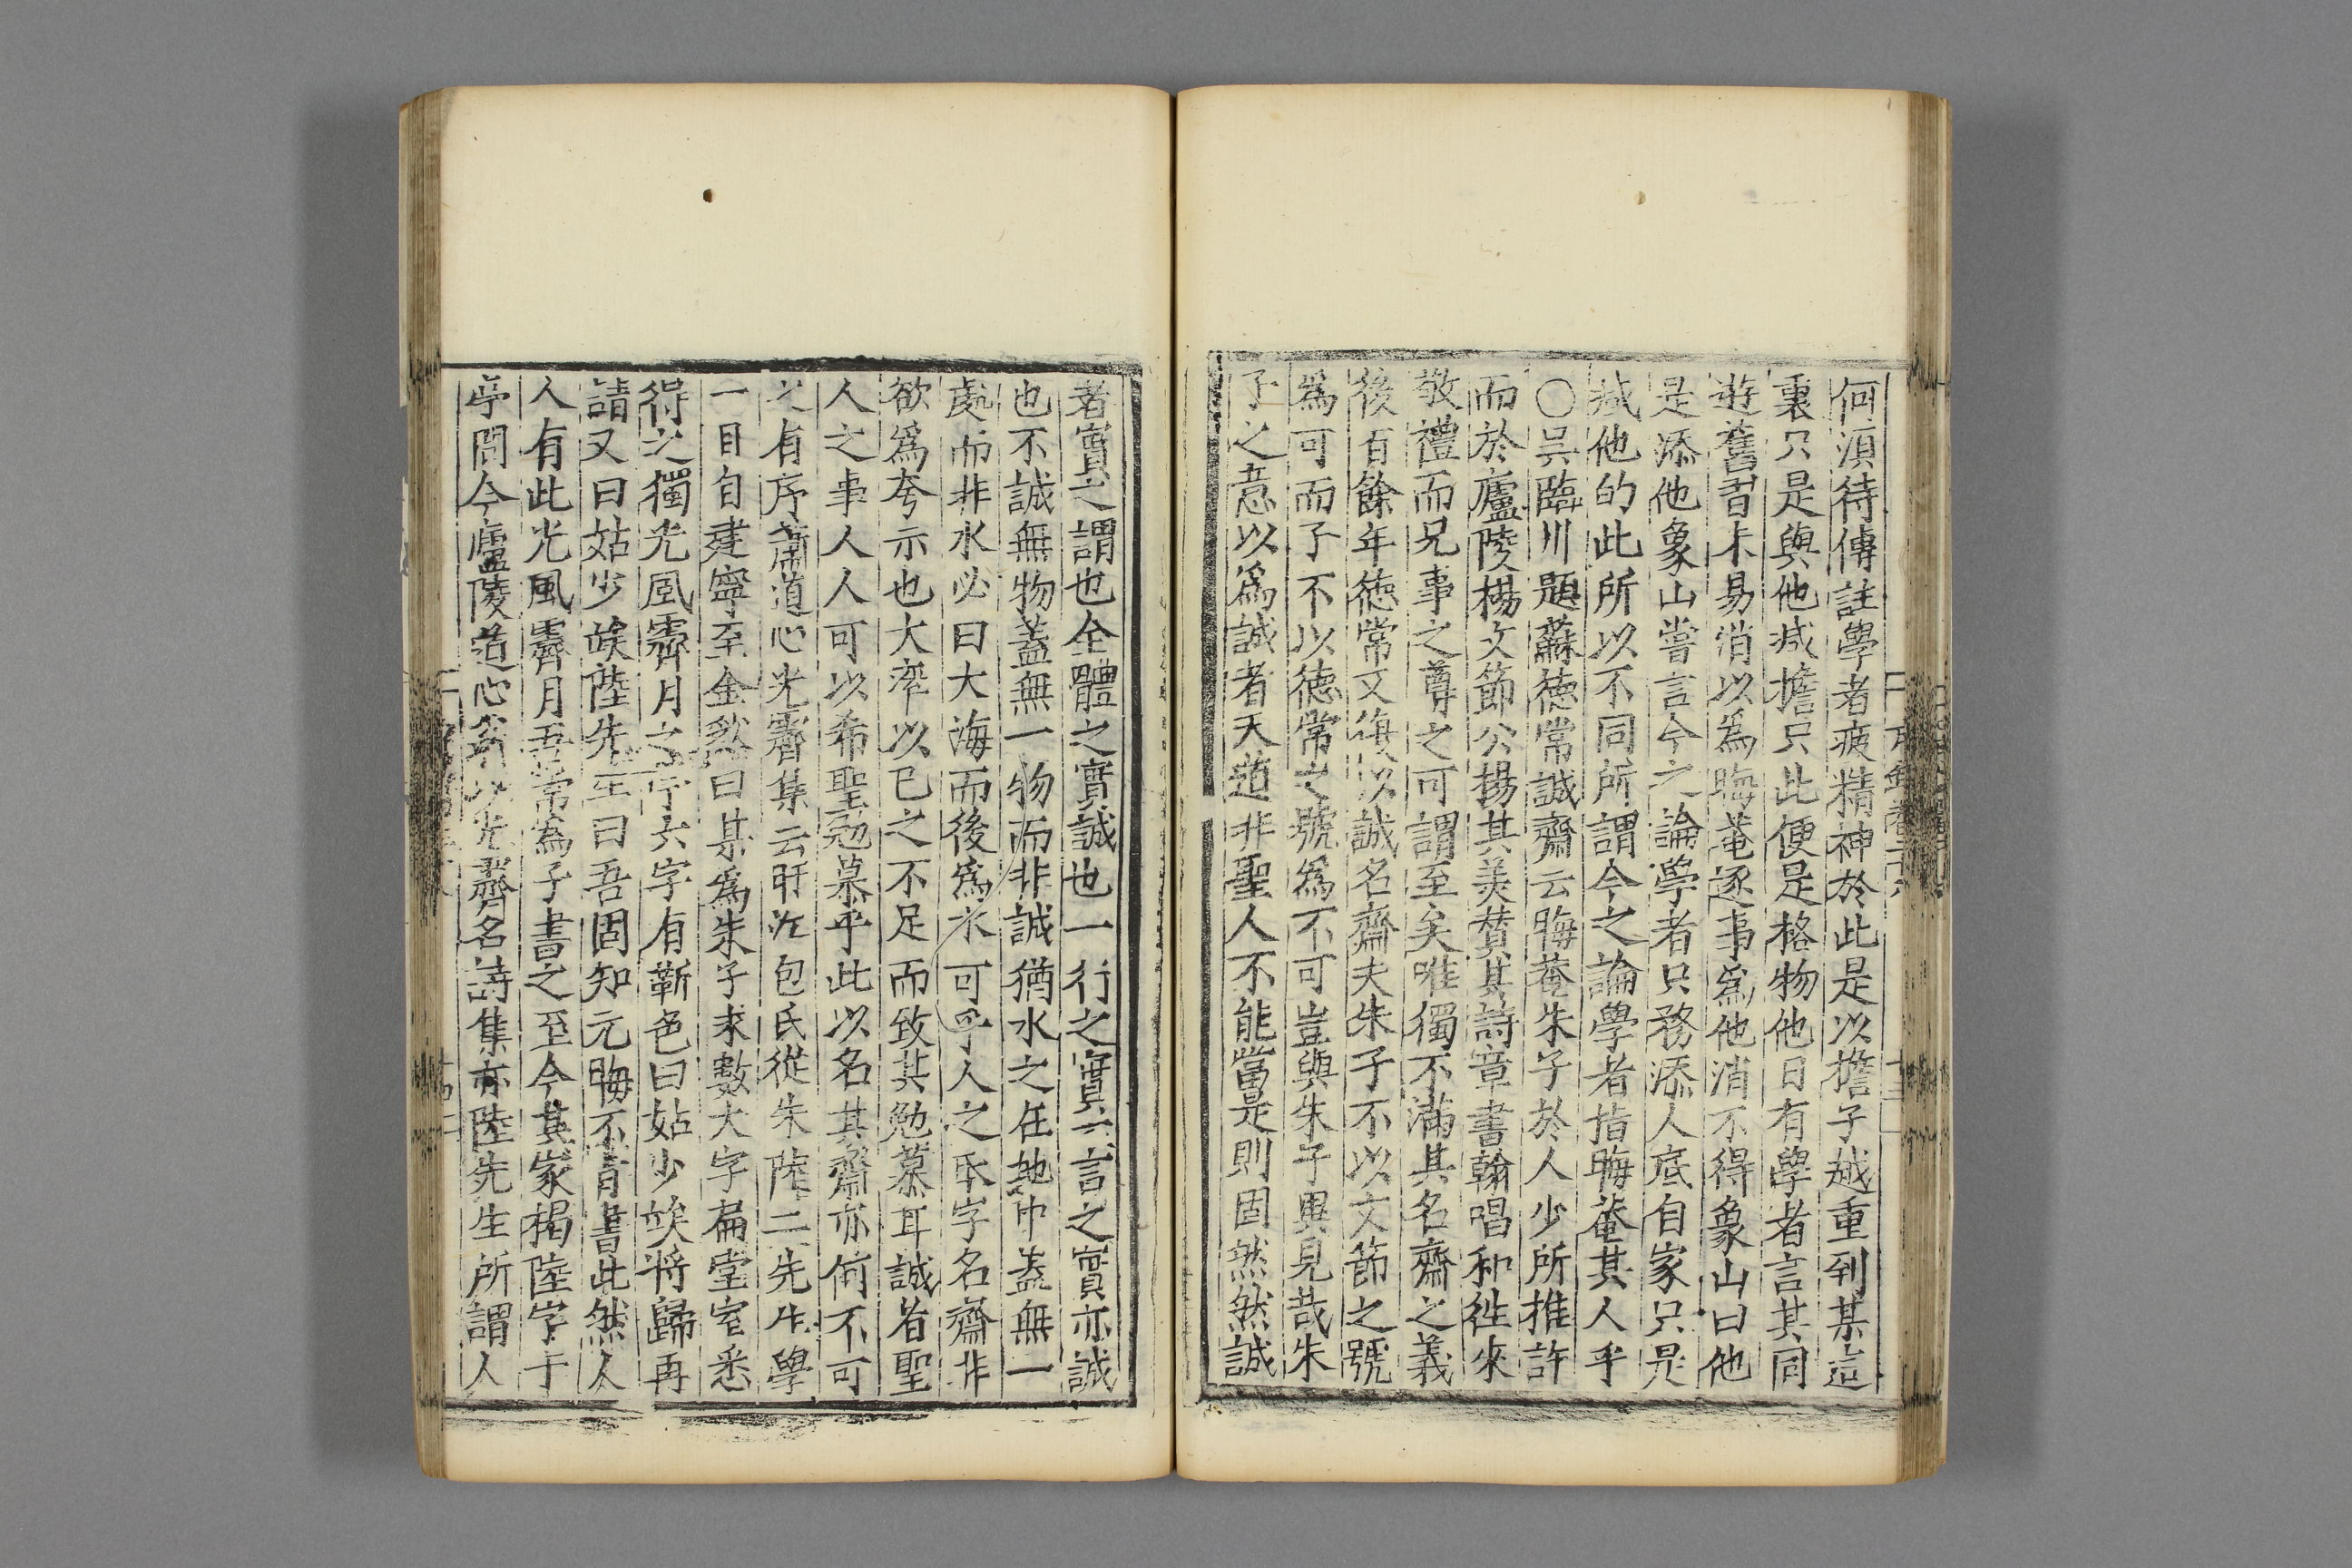 何湏待傳註學者疲精神於此是以擔子越重到某這
裏只是與他减擔只此便是格物他日有學者言其同
遊舊習未易消以爲晦菴逐事爲他消不得象山曰他
是添他象山嘗言今之論學者只務添人底自家只是
减他的此所以不同所謂今之論學者指晦菴其人乎
○吴臨川題蘇德常誠齋云晦菴朱子於人少所推許
而於廬陵楊文節公揚其美賛其詩章書翰唱和徃來
敬禮而兄事之尊之可謂至矣唯獨不滿其名齋之義
後百餘年德常又復以誠名齋夫朱子不以文節之號
爲可而子不以德常之號爲不可豈與朱子異見哉朱
子之意以爲誠者天道非聖人不能當是則固然然誠
者實之謂也全體之實誠也一行之實一言之實亦誠
也不誠無物蓋無一物而非誠猶水之在地中蓋無一
處而非水必曰大海而後爲水可乎人之取字名齋非
欲爲夸示也大率以已之不足而致其勉慕耳誠者聖
人之事人人可以希聖勉慕乎此以名其齋亦何不可
之有序蕭道心光霽集云盱江包氏從朱陸二先生學
一日自建寧至金谿曰某爲朱子求數大字扁堂室悉
得之獨光風霽月之亭六字有靳色曰姑少竢將歸再
請又曰姑少竢陸先生曰吾固知元晦不肯書此然人
人有此光風霽月吾當爲子書之至今其家揭陸字于
亭間今廬陵道心翁以光霽名詩集亦陸先生所謂人